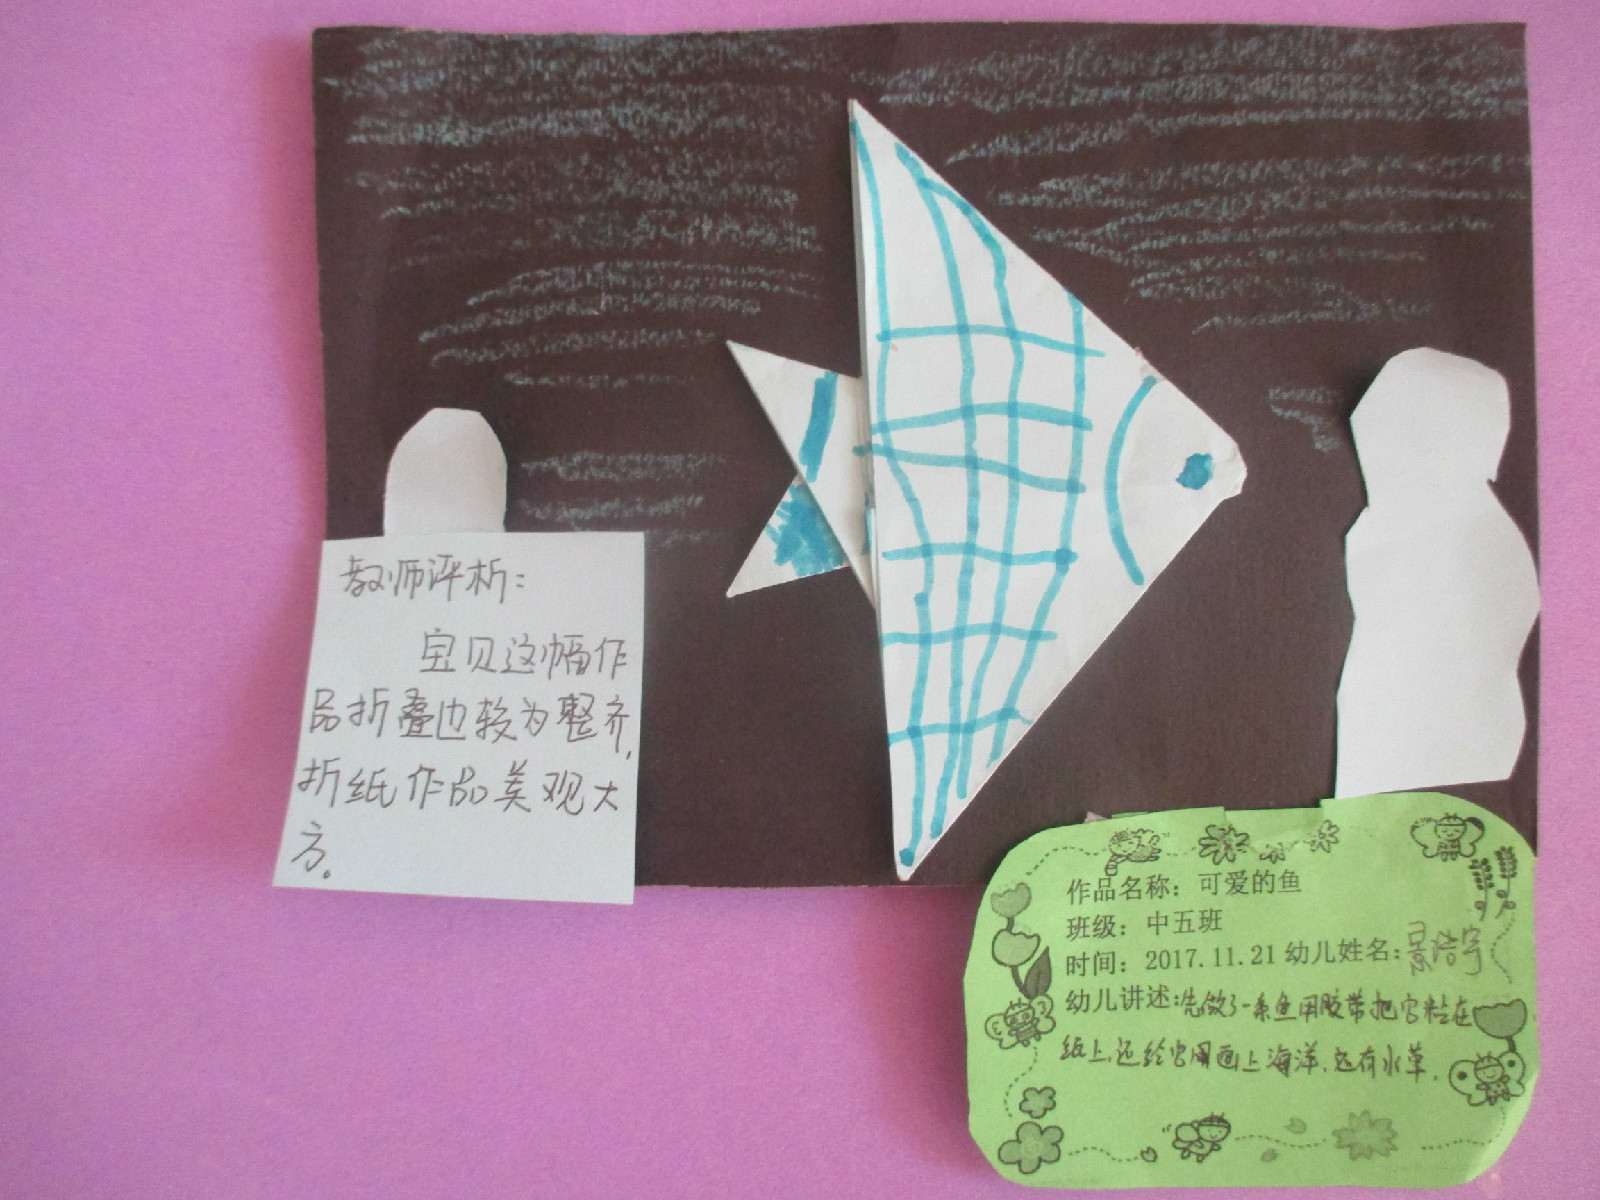 教师评析:
宝贝这幅作
品折叠边较为整齐,
折纸作品美观大
方。
作品名称：可爱的鱼
班级：中五班
时间：2017.11.21 幼儿姓名：景浩宇
幼儿讲述：先做了一条鱼用胶带把它粘在
纸上,还给它用画上海洋.还有水草.